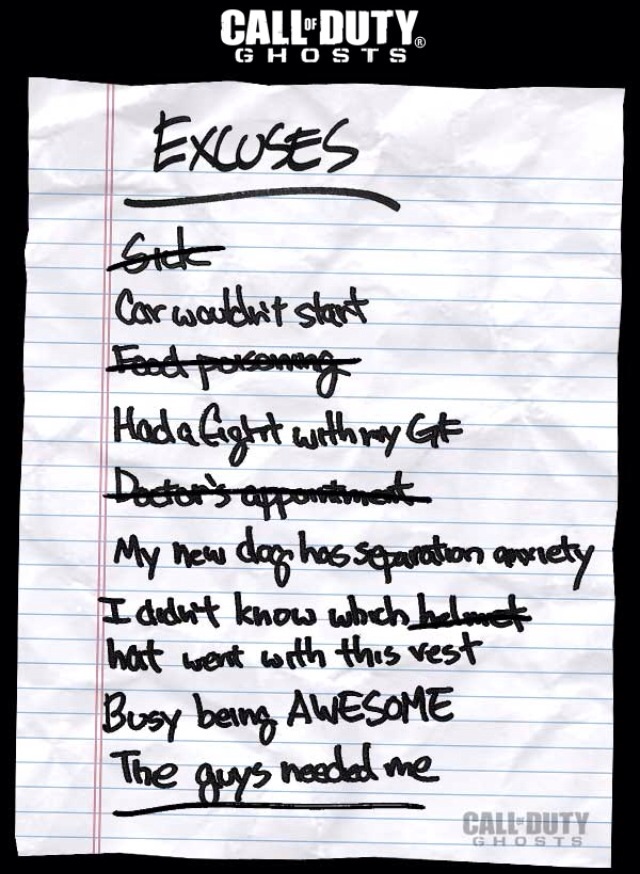 CALL OF DUTY®
GHOSTS
EXCUSES
Sick
Car wouldn't start
Food poisoning
Had a fight with my GF
Doctor's appointment
My new dog has separation anxiety
I didn't know which helmet
hat went with this vest
Busy being AWESOME
The guys needed me
CALL OF DUTY
GHOSTS